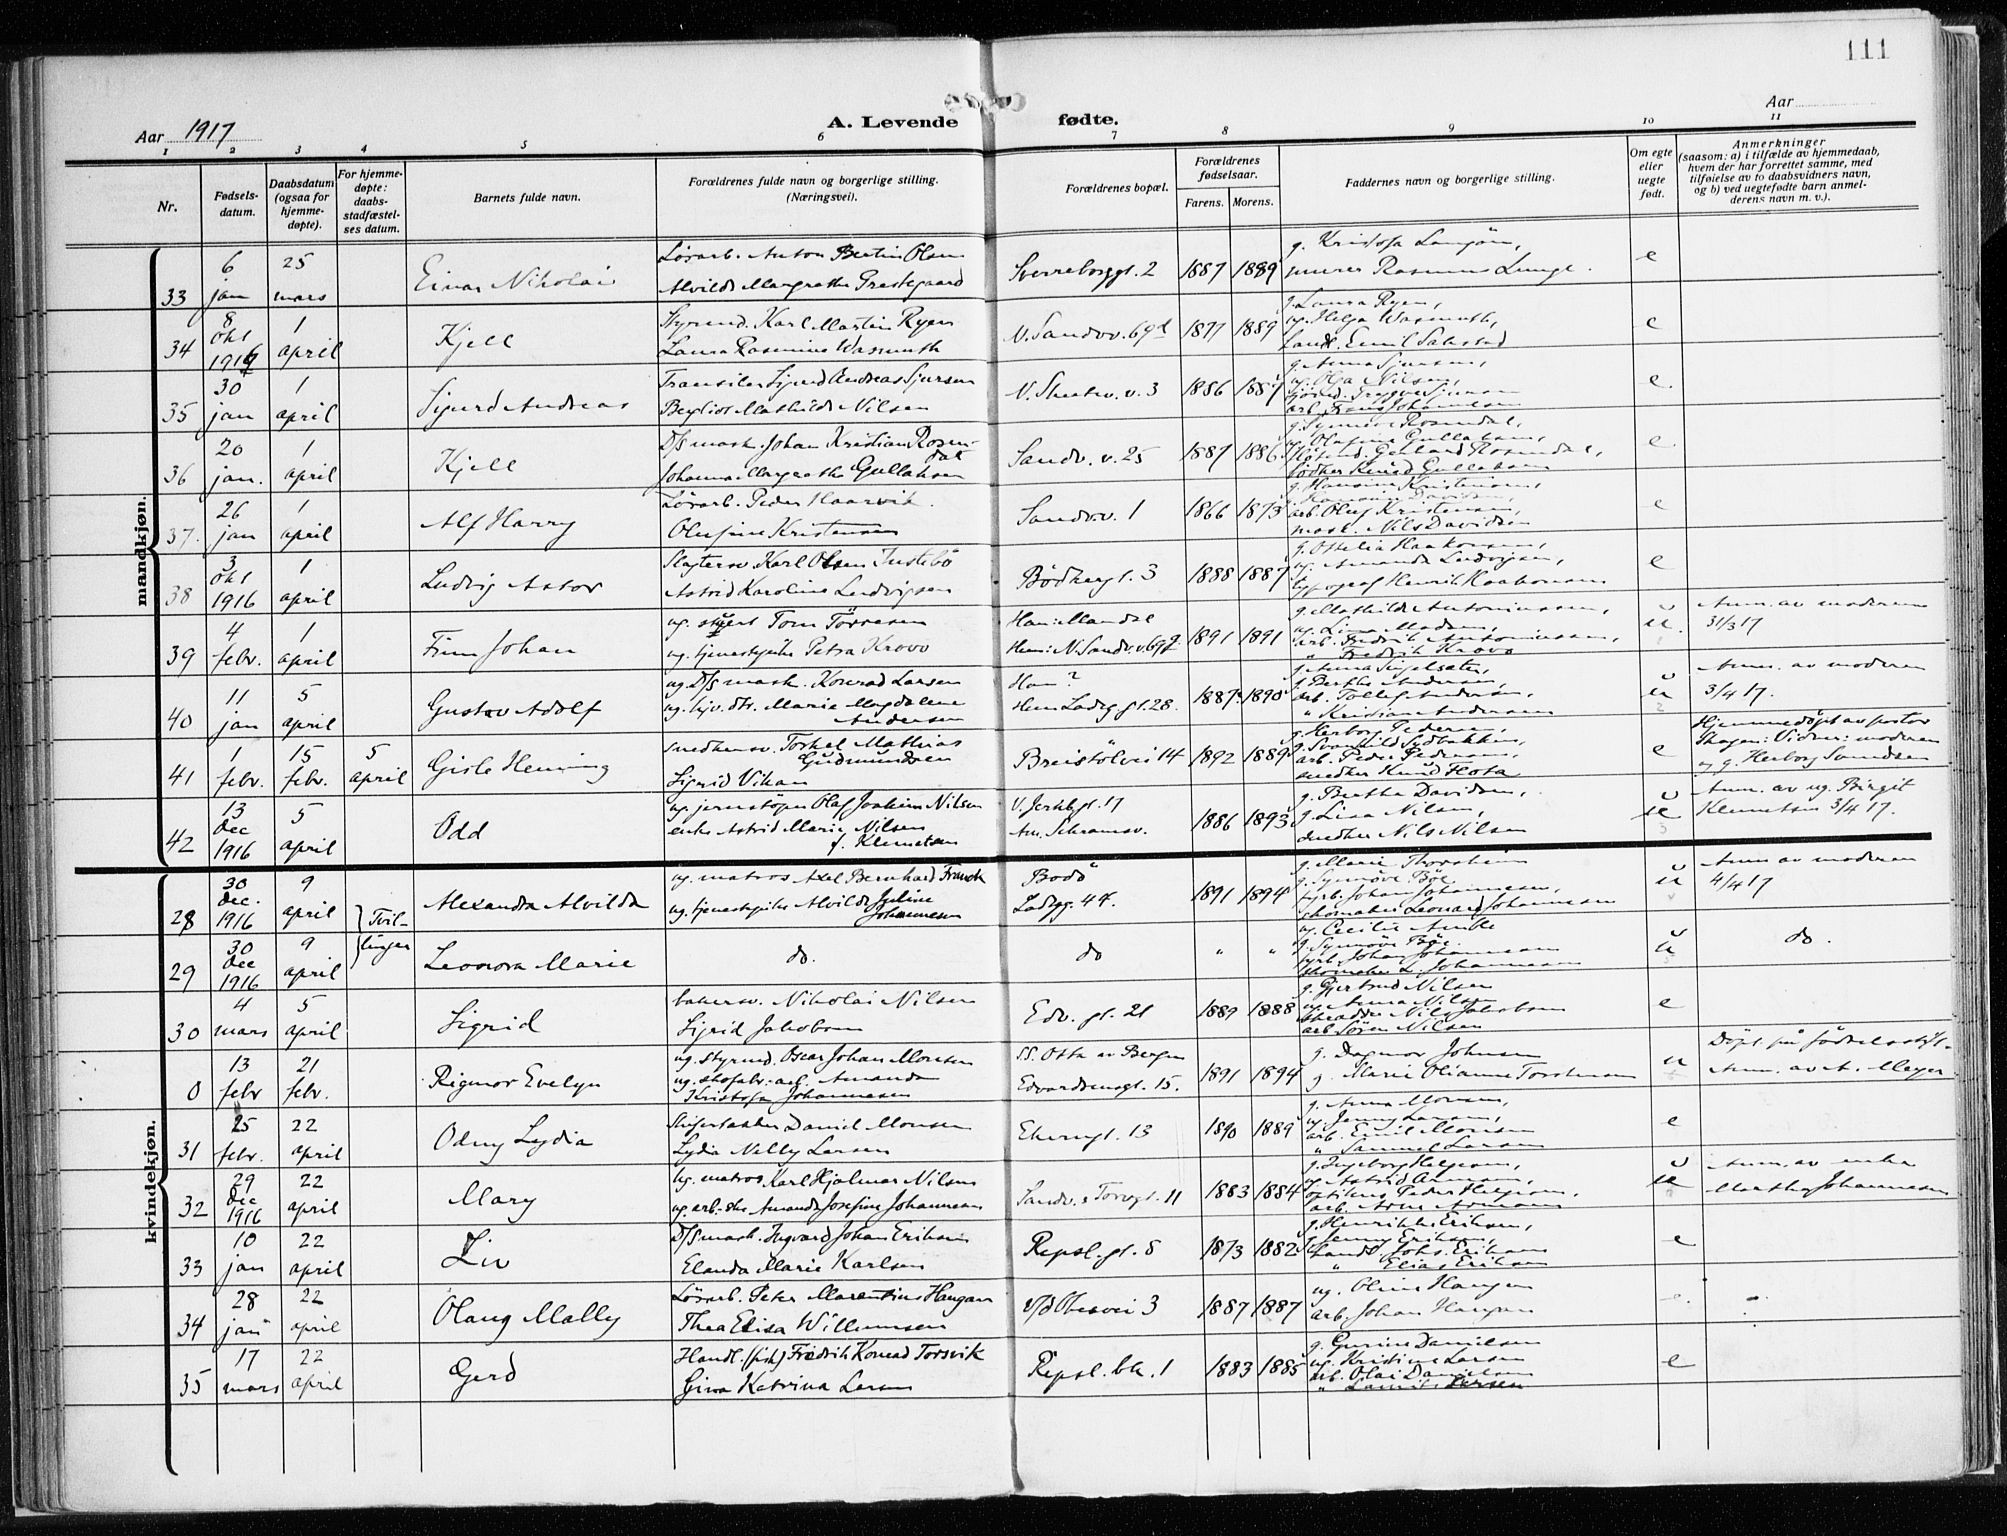 111
Aar 1917
A. Levende fødte.
Aar
1 2 3 4 5 6 7 8 9 10 11
Nr.
Fødsels-
datum.
Daabsdatum
(ogsaa for
hjemme-
døpte).
For hjemme-
døpte:
daabs-
stadfæstel-
ses datum.
Barnets fulde navn.
Forældrenes fulde navn og borgerlige stilling.
(Næringsvei).
Forældrenes bopæl.
Forældrenes
fødselsaar.
Farens. Morens.
Faddernes navn og borgerlige stilling.
Om egte
eller
uegte
født.
Anmerkninger
(saasom: a) i tilfælde av hjemmedaab,
hvem der har forrettet samme, med
tilføielse av to daabsvidners navn,
og b) ved uegtefødte barn anmel-
derens navn m. v.).
mandkjøn.
33
6
jan
25
mars
Einar Nikolai
Lørarb. Anton Bertin Olsen
Alvilde Margrethe
Sverreborggt. 2
1887 1889
murer Rasmus Lunge.
e
34
8
okt
1916
1
april
Kjell
Styrmd. Karl Martin Ryen
Laura Rasmine Wasmuth
N. Sandv.v. 69
1877 1889
g. Laura Ryen,
ug. Helga Wasmuth,
handl. Emil
e
35
30
jan
1
april
Sigurd Andreas
Sigurd Andreas Sjursen
Mathilde Nilsen
v. 3
1886 1887
g. Anna Sjursen,
ug. Olga Nilsen,
arb. Frans Johannesen
e
36
20
jan.
1
april
Kjell
D/S mask. Johan Kristian Rosen-
dal
Johanne Margrethe Gullaksen
Sandv. v. 25
1887 1886
g. Synnøve Rosendal,
ug. Olufine Gullaksen,
Gerhard Rosendal,
bødker Knud Gullaksen
e
37.
26
jan
1
april
Alf Harry
Lørarb. Peder Haarvik.
Olufine Kristensen
Sandv.v. 1
1866 1873
g. Hansine Kristensen,
arb. Oluf Kristensen,
mask. Nils Davidsen
e
38
3
okt
1916
1
april
Ludvig Astor
Slagtersv. Karl Olsen
Astrid Karoline Ludvigsen
Bödkergt. 3
1888 1887
g. Ottelia Haakonsen,
ug. Amanda Ludvigsen,
typograf Henrik Haakonsen
e
39
4
febr.
1
april
Finn Johan
ug. Tom Törresen
ug. tjenestepike Petra Krovo
Han: Mandal
Hun: N. Sandv. v. 69
1891 1891
g. Mathilde Antoniussen,
ug. Lina Madsen,
arb. Fredrik Antoniussen,
" Fredrik Krovo
u.
Anm. av moderen
31/3 17
40
11
jan
5
april
Gustav Adolf
ug. D/S mask. Konrad Larsen
ug. Marie Magdalene
Andersen
Han ?
Hun Ladeg. gt. 28.
1887. 1890
g. Berthe Andersen,
arb. Tollef Andersen,
" Kristian Andersen
u
Anm. av moderen
3/4 17.
41
1
febr.
15
febr.
5
april
Gisle Henning
snedkersv. Torkel Mathias
Gudmundsen
Sigrid Vikan
Breistölvei 14
1892 1889
g. Herborg Pedersen,
arb. Peder Pedersen,
snedker Knud Hosta
e
Hjemmedöpt av pastor
Skagen: Vidner: moderen
og g. Herborg Samdsen
42
13
dec
1916
5
april
Odd
ug. jernstöper Olaf Joakim Nilsen
enke Astrid Marie Nilsen
f. Klemetsen
17
1886 1893
g. Berthe Davidsen,
g. Lina Nilsen,
snedker Nils Nilsen
u
Anm. av ug. Birgit
Klemetsen 3/4 17.
kvindekjøn.
28
30
dec.
1916
9
april
Tvil-
linger
Alexandra Alvilda
ug. matros Axel Bernhard Franck
ug. tjenestepike Alvilde Juline
Johannesen
Bodö
Ladeg. 44.
1891 1894
g. Synnöve Böe
fyrb. Johan Johannesen,
skomaker Leonard Johannesen
u
Anm av moderen
4/4 17
29
30
dec
1916
9
april
Leonora Marie
do.
do
" "
ug. Cecilie
g. Synnöve Böe.
fyrb. Johan Johannesen
skomaker L. Johannesen
u
do.
30
4
mars
5
april
Sigrid
bakersv. Nikolai Nilsen
Sigrid Jakobsen
Edv. gt. 21
1889 1888
g. Gjertrud Nilsen
ug. Anna Nilsen
Nils Jakobsen
arb. Sören Nilsen
e
0
13
febr
21
febr.
Rigmor Evelyn
ug. styrmd. Oscar Johan Monsen
ug. skofabr.-arb. Amanda
Kristofa Johannesen
S.S. Otta av Bergen
Edvardsensgt. 15.
1891 1894
g. Dagmor Johnsen
g. Marie Olianne Torstensen
u
Döpt på födselsstift.
Anm. av A. Meyer
31
25
febr.
22
april
Odny Lydia
Daniel Monsen
Lydia Nelly Larsen
Ekerngt. 13
1890 1889
g. Anna Monsen,
ug. Jenny Larsen,
arb. Emil Monsen
" Samuel Larsen
e
32
29
dec
1916
22
april
Mary
ug. matros Karl Hjalmar Nilsen
ug. arb.-ske Amanda Josefine Johannesen
Sandv. Torvgt. 11
1883 1884
g. Ingeborg Helgesen,
ug. Astrid
Peder Helgesen,
arb. Arne
u
Anm. av enke
Marthe Johannesen
33
10
jan
22
april
Liv
D/S mask. Ingvard Johan Eriksen
Elanda Marie Karlsen
Repsl. gt. 8
1873 1882
g. Henrikke Eriksen,
g. Jenny Eriksen,
handl. Johs. Eriksen
" Elias Eriksen
e
34
28
jan
22
april
Olaug Mally
Lörarb. Peter Marentius Haugan
Thea Elisa Willumsen
3
1887 1887
ug. Oline Haugen
arb. Johan Haugen
e.
35
17
mars
22
april
Gerd
Handl. (fisk) Fredrik Konrad Torsvik
Gina Katrina Larsen
Repsl. bk. 1
1883 1885
g. Gurine Danielsen
ug. Kristine Larsen
arb. Olai Danielsen
" Larsen
e